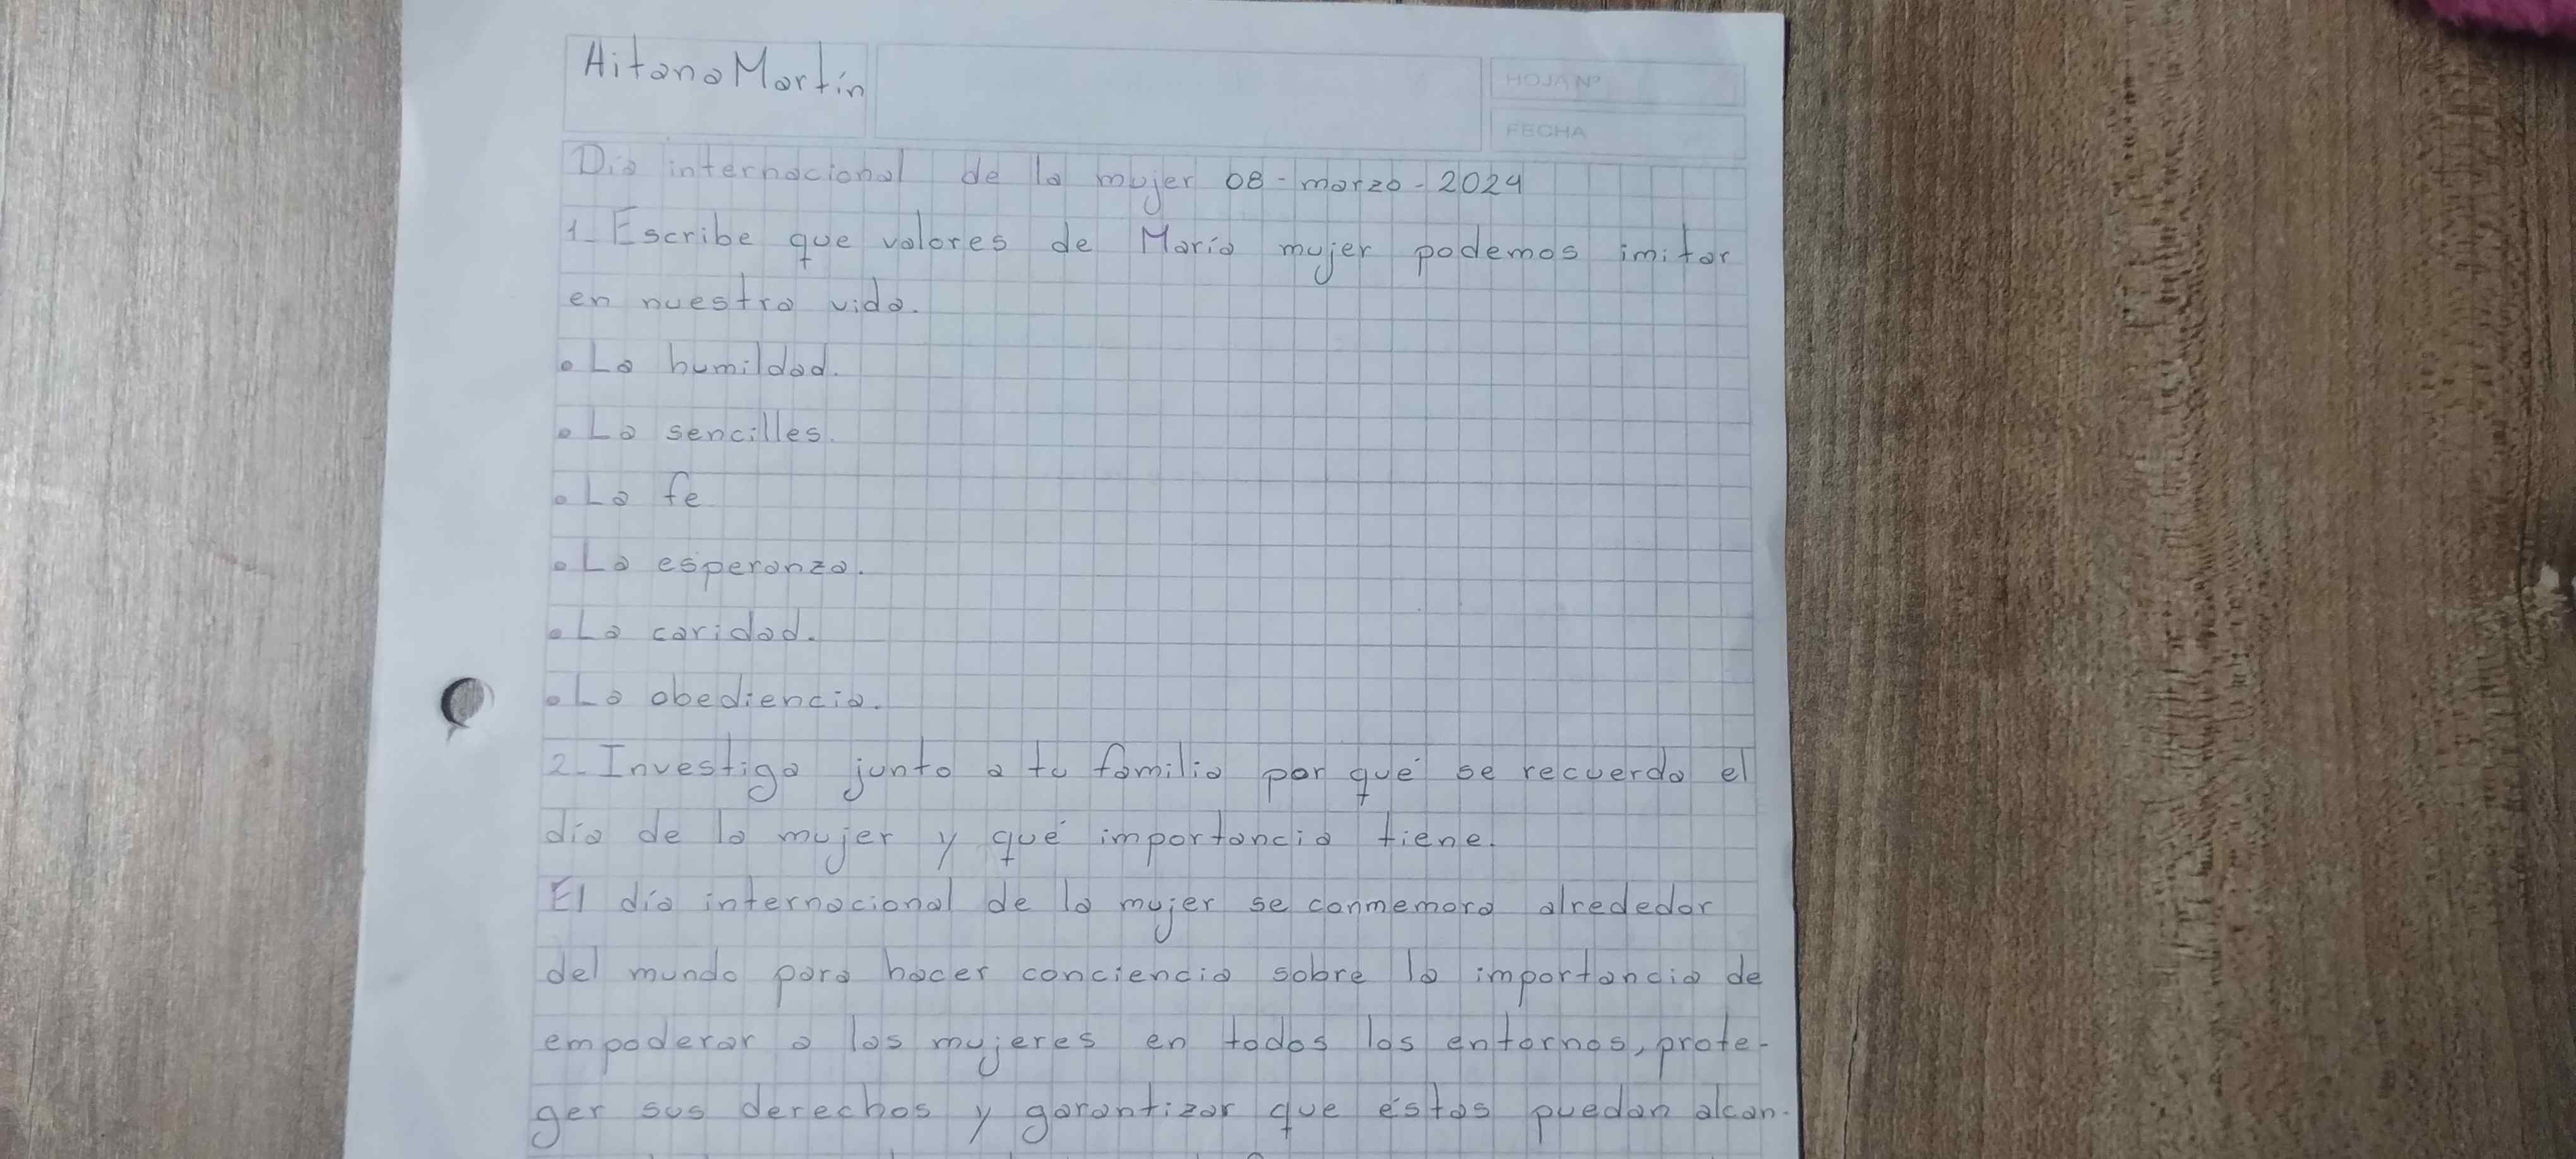 Aitana Martín
HOJA Nº
FECHA
Dia internacional de la mujer 08-marzo-2024
1. Escribe que valores de María mujer podemos imitar
en nuestra vida.
• La humildad.
• La sencilles.
• La fe
• La esperanza.
• La caridad.
• La obediencia.
2. Investiga junto a tu familia por qué se recuerda el
día de la mujer y qué importancia tiene.
El día internacional de la mujer se conmemora alrededor
del mundo para hacer conciencia sobre la importancia de
empoderar a las mujeres en todos los entornos, prote-
ger sus derechos y garantizar que éstas puedan alcan-